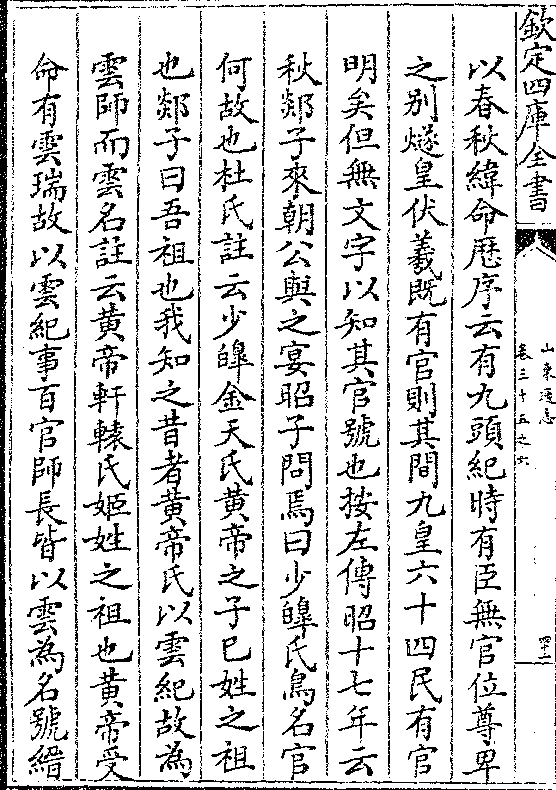 欽定四庫全書
山東通志
卷三十五之六
四十二
以春秋緯命歷序云有九頭紀時有臣無官位尊卑
之别燧皇伏羲既有官則其間九皇六十四民有官
明矣但無文字以知其官號也按左傳昭十七年云
秋郯子來朝公與之宴昭子問焉曰少皥氏鳥名官
何故也杜氏註云少皥金天氏黄帝之子已姓之祖
也郯子曰吾祖也我知之昔者黄帝氏以雲紀故為
雲師而雲名註云黄帝軒轅氏姬姓之祖也黄帝受
命有雲瑞故以雲紀事百官師長皆以雲為名號縉